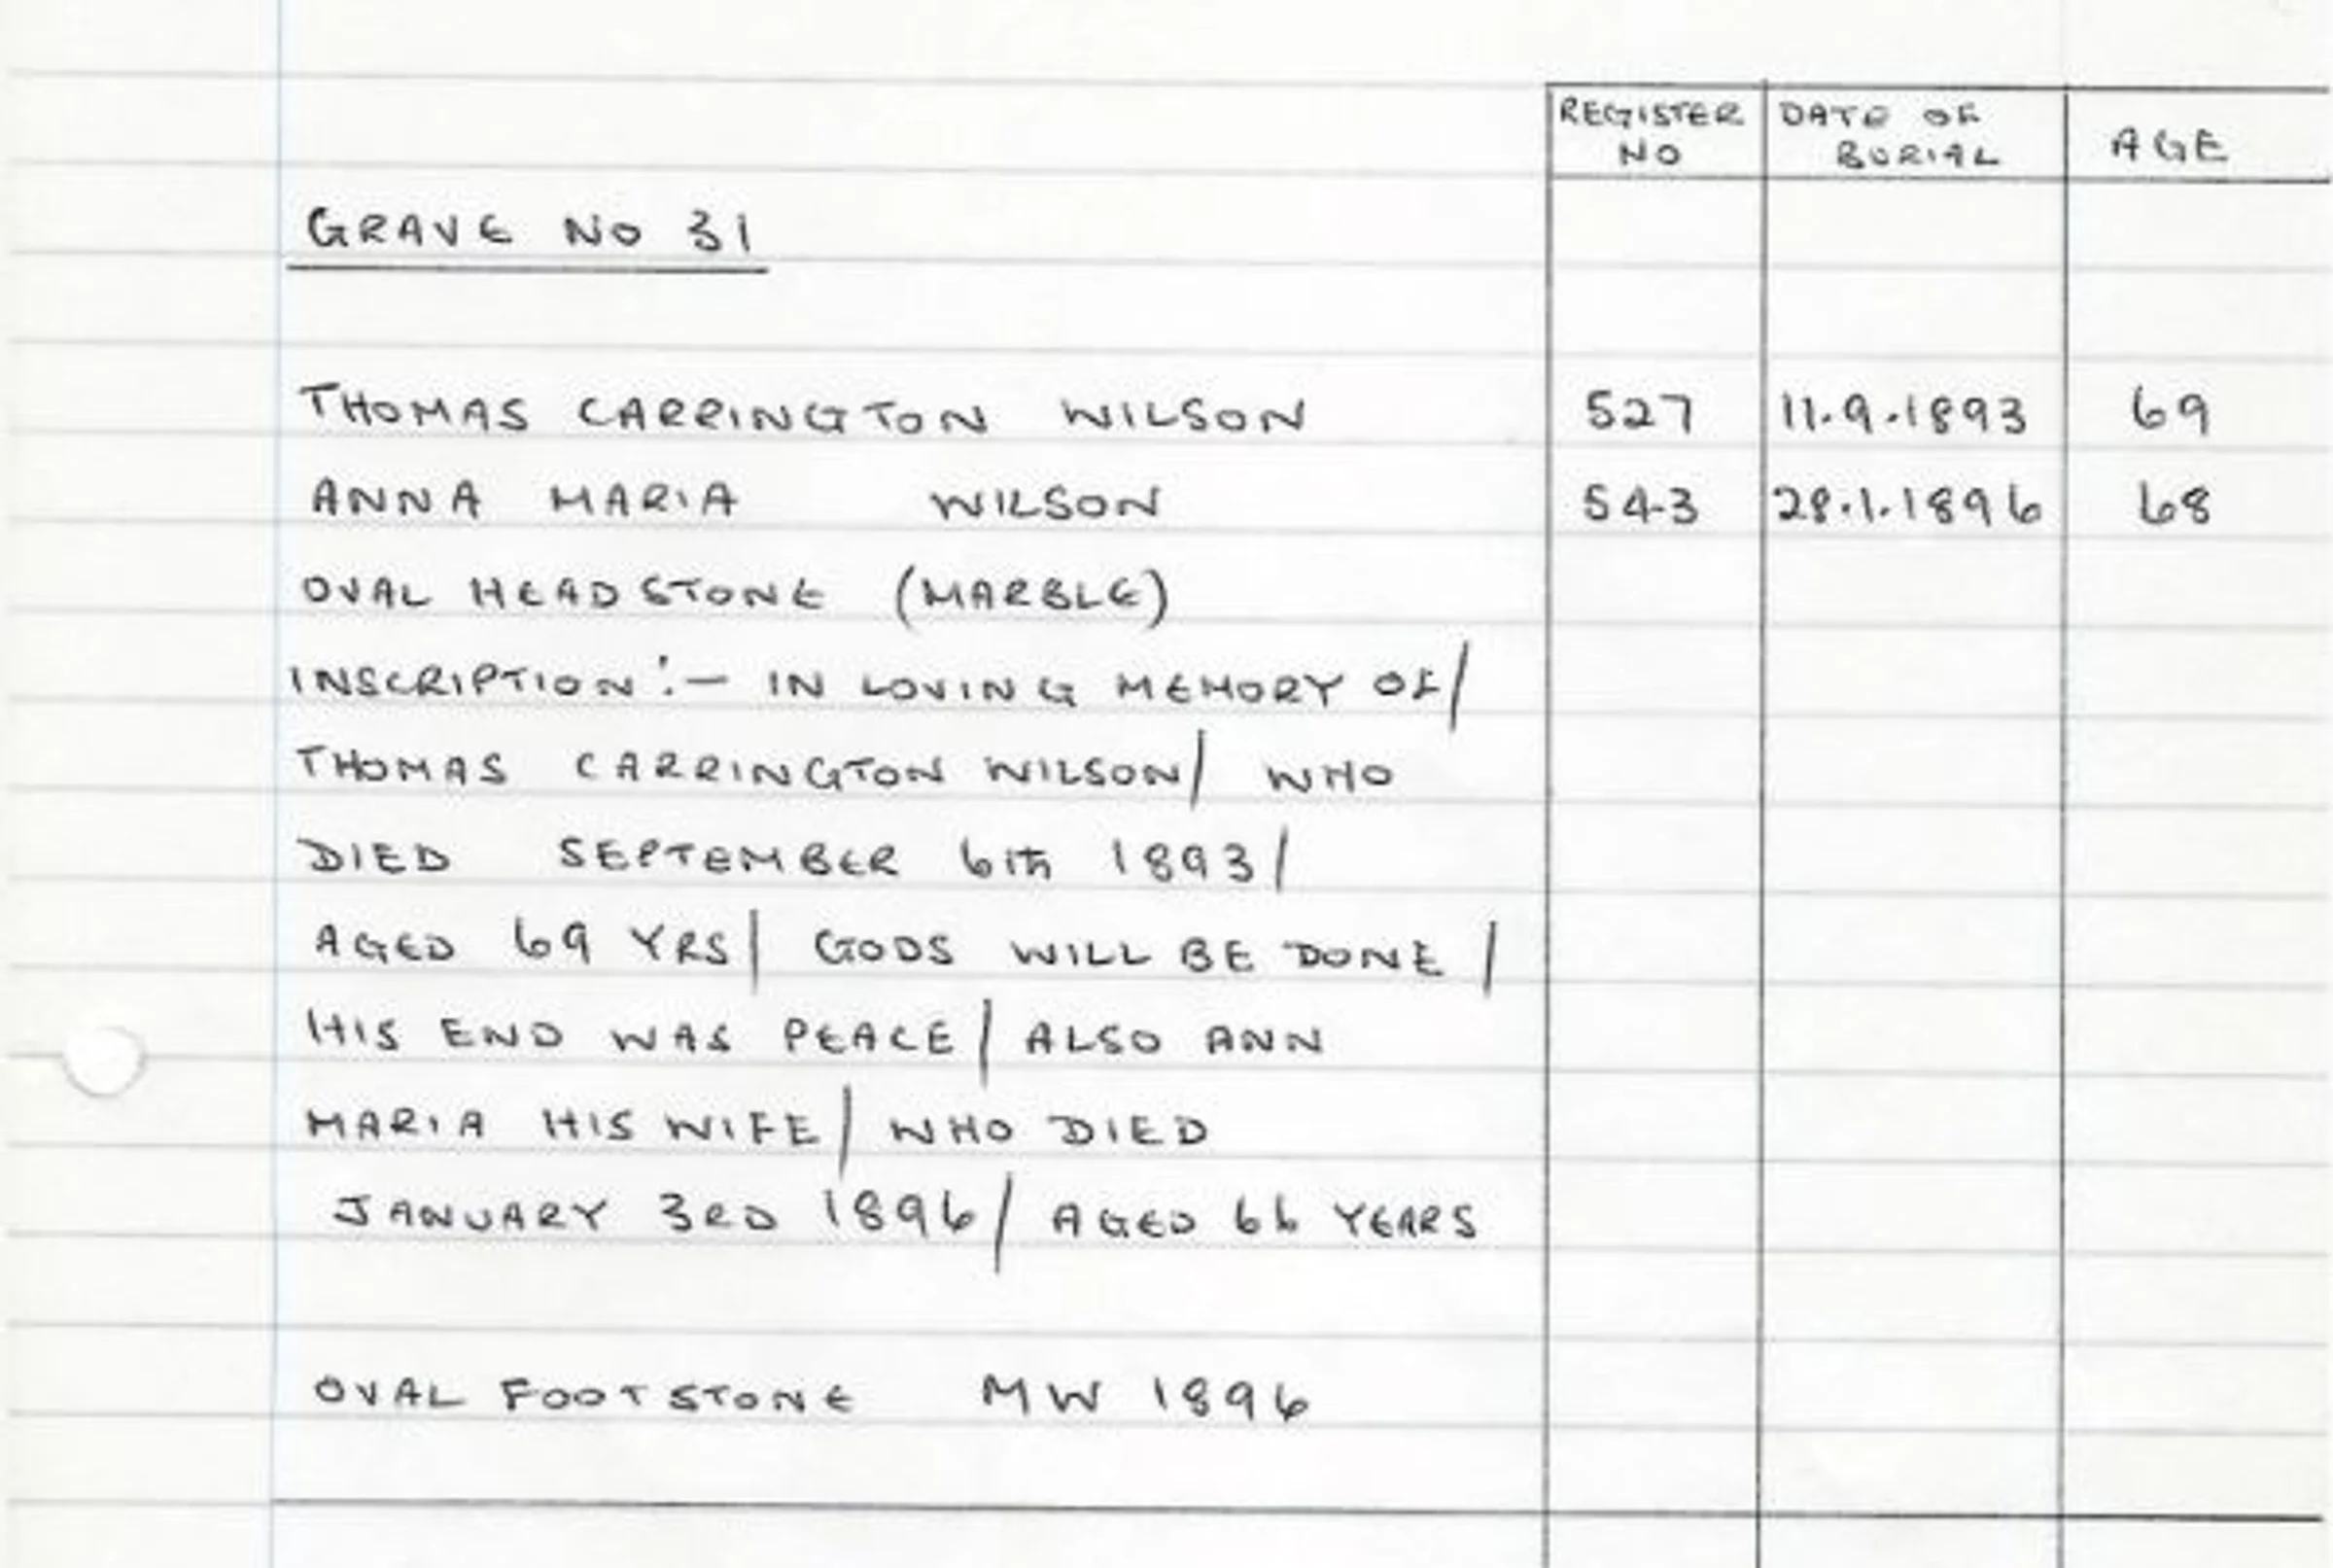 REGISTER NO DATE OF BURIAL AGE
GRAVE NO 31
THOMAS CARRINGTON WILSON 527 11.9.1893 69
ANNA MARIA WILSON 543 28.1.1896 68
OVAL HEADSTONE (MARBLE)
INSCRIPTION :- IN LOVING MEMORY OF/
THOMAS CARRINGTON WILSON/ WHO
DIED SEPTEMBER 6TH 1893/
AGED 69 YRS/ GODS WILL BE DONE /
HIS END WAS PEACE/ ALSO ANN
MARIA HIS WIFE/ WHO DIED
JANUARY 3RD 1896/ AGED 66 YEARS
OVAL FOOTSTONE MW 1896